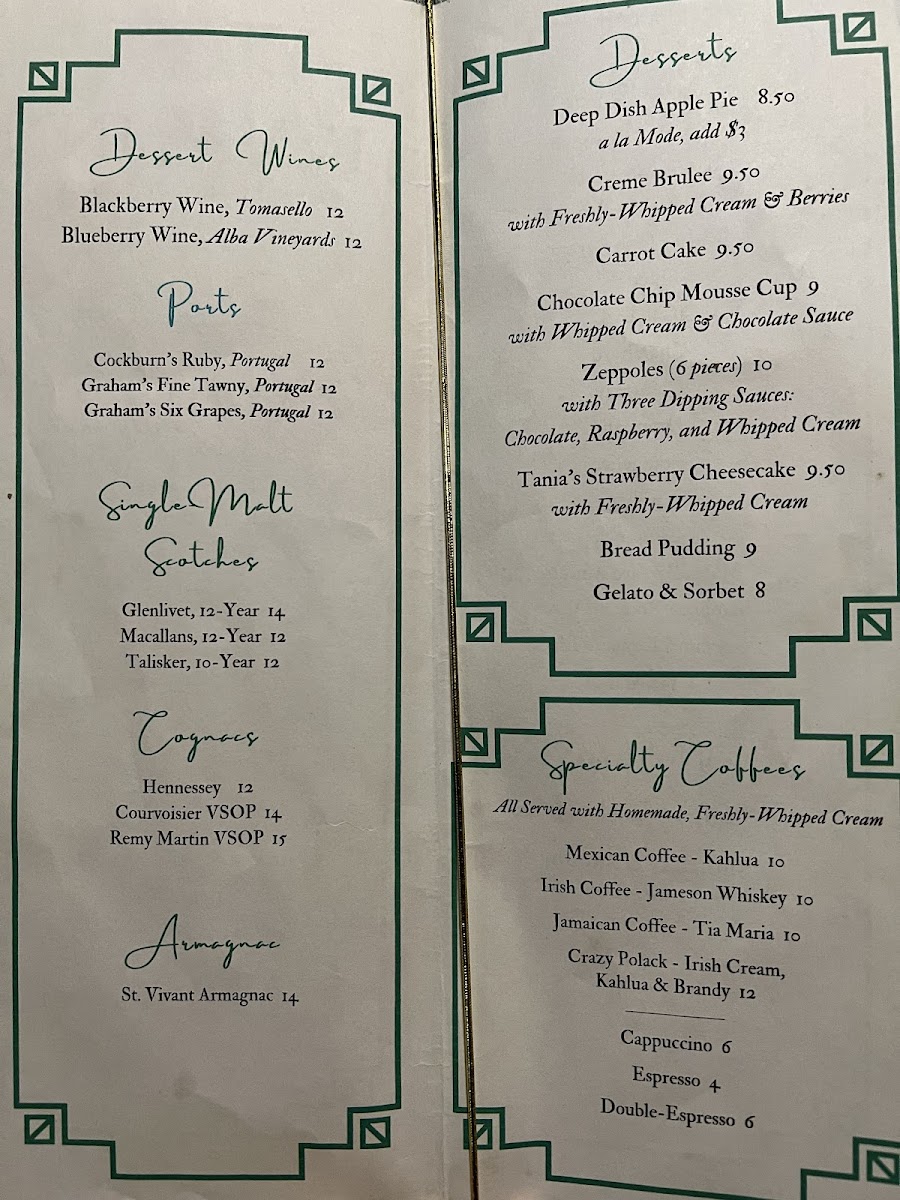 Dessert Wines
Blackberry Wine, Tomasello 12
Blueberry Wine, Alba Vineyards 12
Ports
Cockburn's Ruby, Portugal 12
Graham's Fine Tawny, Portugal 12
Graham's Six Grapes, Portugal 12
Single Malt
Scotches
Glenlivet, 12-Year 14
Macallans, 12-Year 12
Talisker, 10-Year 12
Cognacs
Hennessey 12
Courvoisier VSOP 14
Remy Martin VSOP 15
Armagnac
St. Vivant Armagnac 14
Desserts
Deep Dish Apple Pie 8.50
a la Mode, add $3
Creme Brulee 9.50
with Freshly-Whipped Cream & Berries
Carrot Cake 9.50
Chocolate Chip Mousse Cup 9
with Whipped Cream & Chocolate Sauce
Zeppoles (6 pieces) 10
with Three Dipping Sauces:
Chocolate, Raspberry, and Whipped Cream
Tania's Strawberry Cheesecake 9.50
with Freshly-Whipped Cream
Bread Pudding 9
Gelato & Sorbet 8
Specialty Coffees
All Served with Homemade, Freshly-Whipped Cream
Mexican Coffee - Kahlua 10
Irish Coffee - Jameson Whiskey 10
Jamaican Coffee - Tia Maria 10
Crazy Polack - Irish Cream,
Kahlua & Brandy 12
Cappuccino 6
Espresso 4
Double-Espresso 6